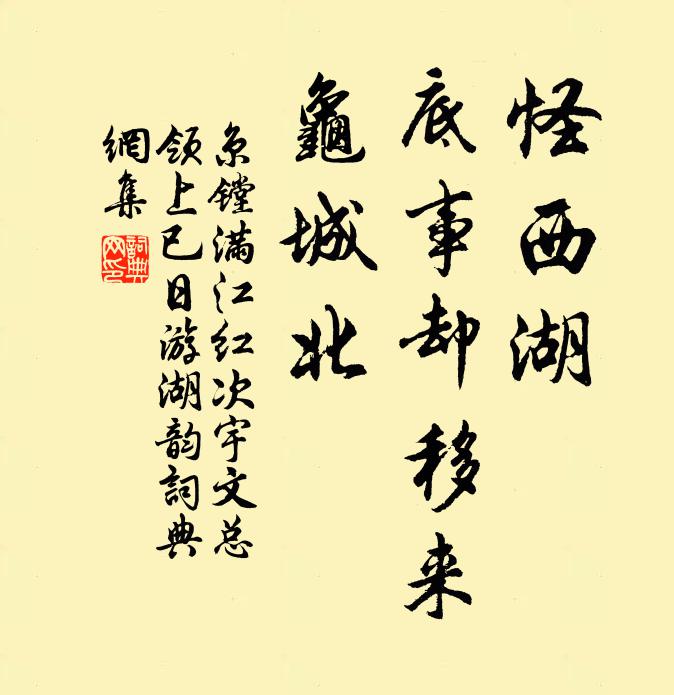 怪西湖
底事却移来
龜城北
京镗满江红次宇文总
领上巳日游湖韵詞典
網集
詞典網印